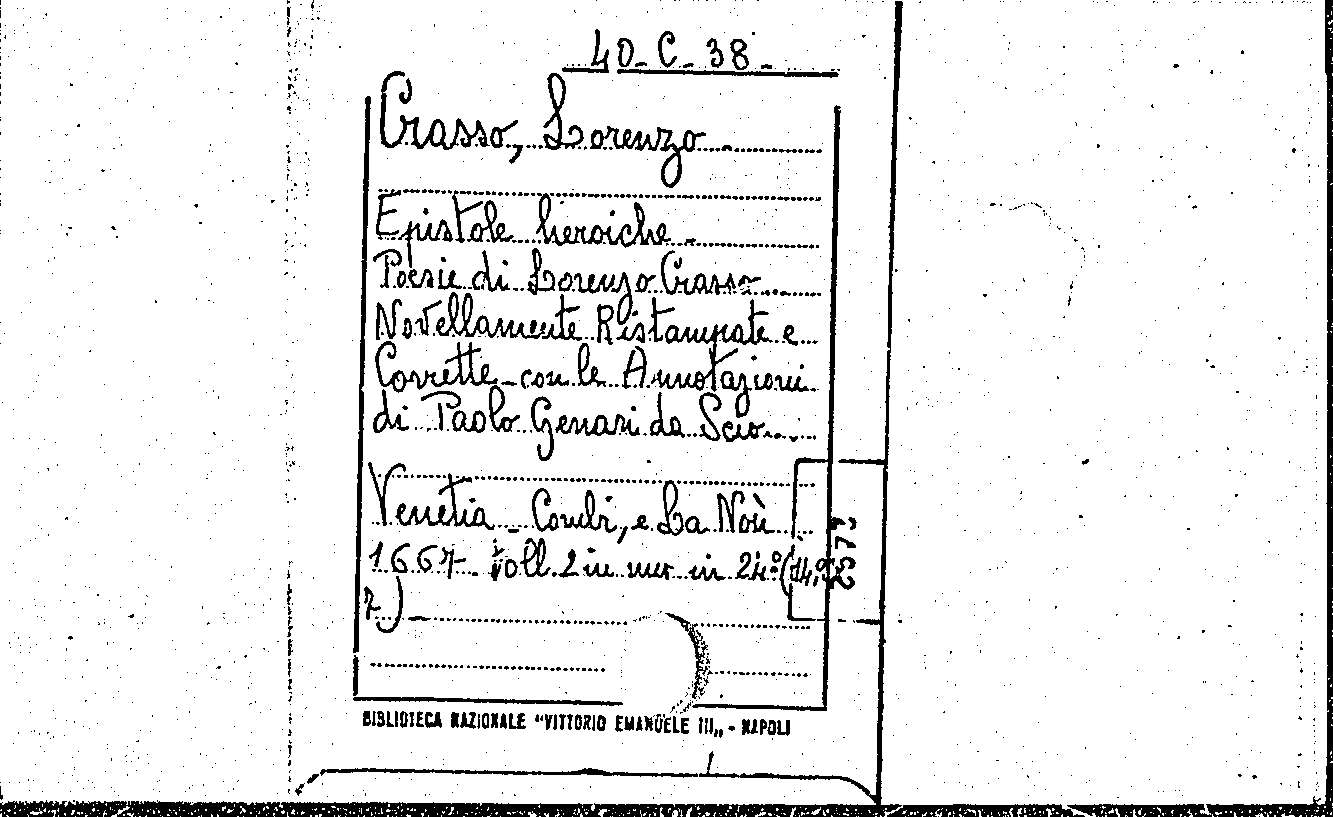 40-C-38-
Crasso, Lorenzo -
Epistole heroiche -
Poesie di Lorenzo Crasso
Novellamente Ristampate e
Corrette - con le Annotazioni
di Paolo Genari da Scio
Venetia - Combi, e La Noù
1667. Voll. 2 in un in 24º (14,º
7) -
2577
BIBLIOTECA NAZIONALE "VITTORIO EMANUELE III„ - NAPOLI